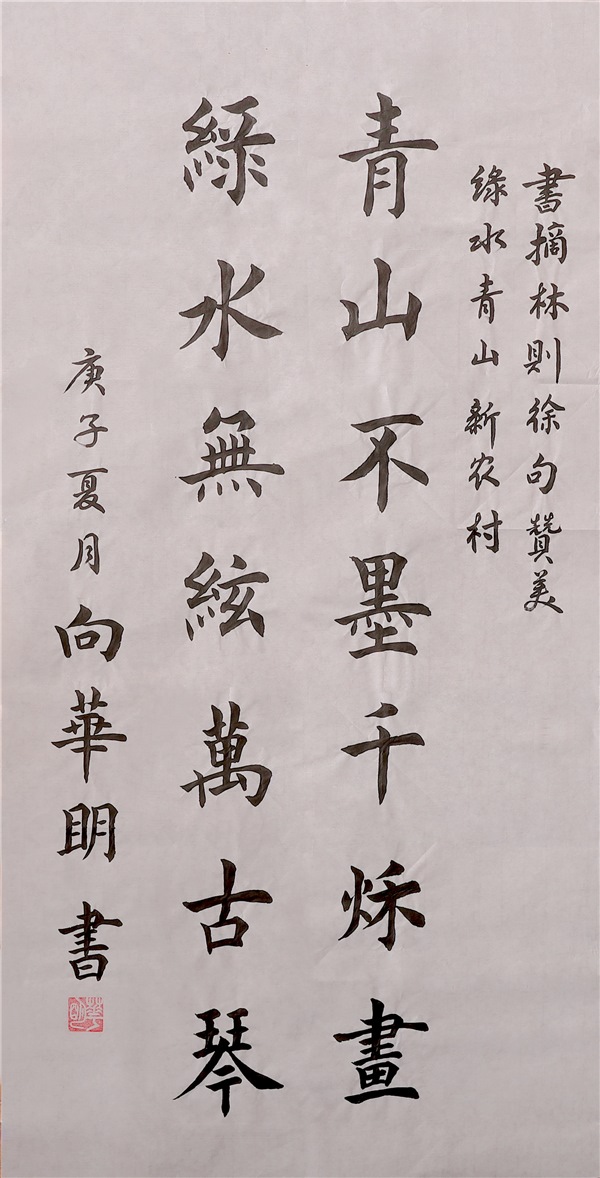 書摘林則徐句贊美
綠水青山新农村
青山不墨千秌畫
綠水無絃萬古琴
庚子夏月向華明書
華明